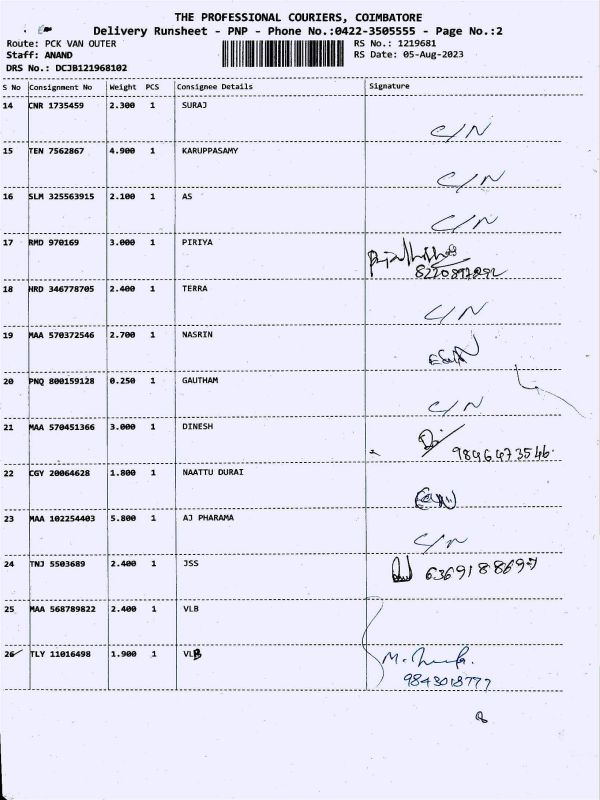 THE PROFESSIONAL COURIERS, COIMBATORE
Delivery Runsheet - PNP - Phone No.:0422-3505555 - Page No.:2
Route: PCK VAN OUTER RS No.: 1219681
Staff: ANAND RS Date: 05-Aug-2023
DRS No.: DCJB121968102
S No Consignment No Weight PCS Consignee Details Signature
14 CNR 1735459 2.300 1 SURAJ
C/N
15 TEN 7562867 4.900 1 KARUPPASAMY
C/N
16 SLM 325563915 2.100 1 AS
C/N
17 RMD 970169 3.000 1 PIRIYA
18 HRD 346778705 2.400 1 TERRA
C/N
19 MAA 570372546 2.700 1 NASRIN
20 PNQ 800159128 0.250 1 GAUTHAM
C/N
21 MAA 570451366 3.000 1 DINESH
9846473546
22 CGY 20064628 1.800 1 NAATTU DURAI
23 MAA 102254403 5.800 1 AJ PHARAMA
C/N
24 TNJ 5503689 2.400 1 JSS
6369188697
25 MAA 568789822 2.400 1 VLB
26 TLY 11016498 1.900 1 VLB
9843018777